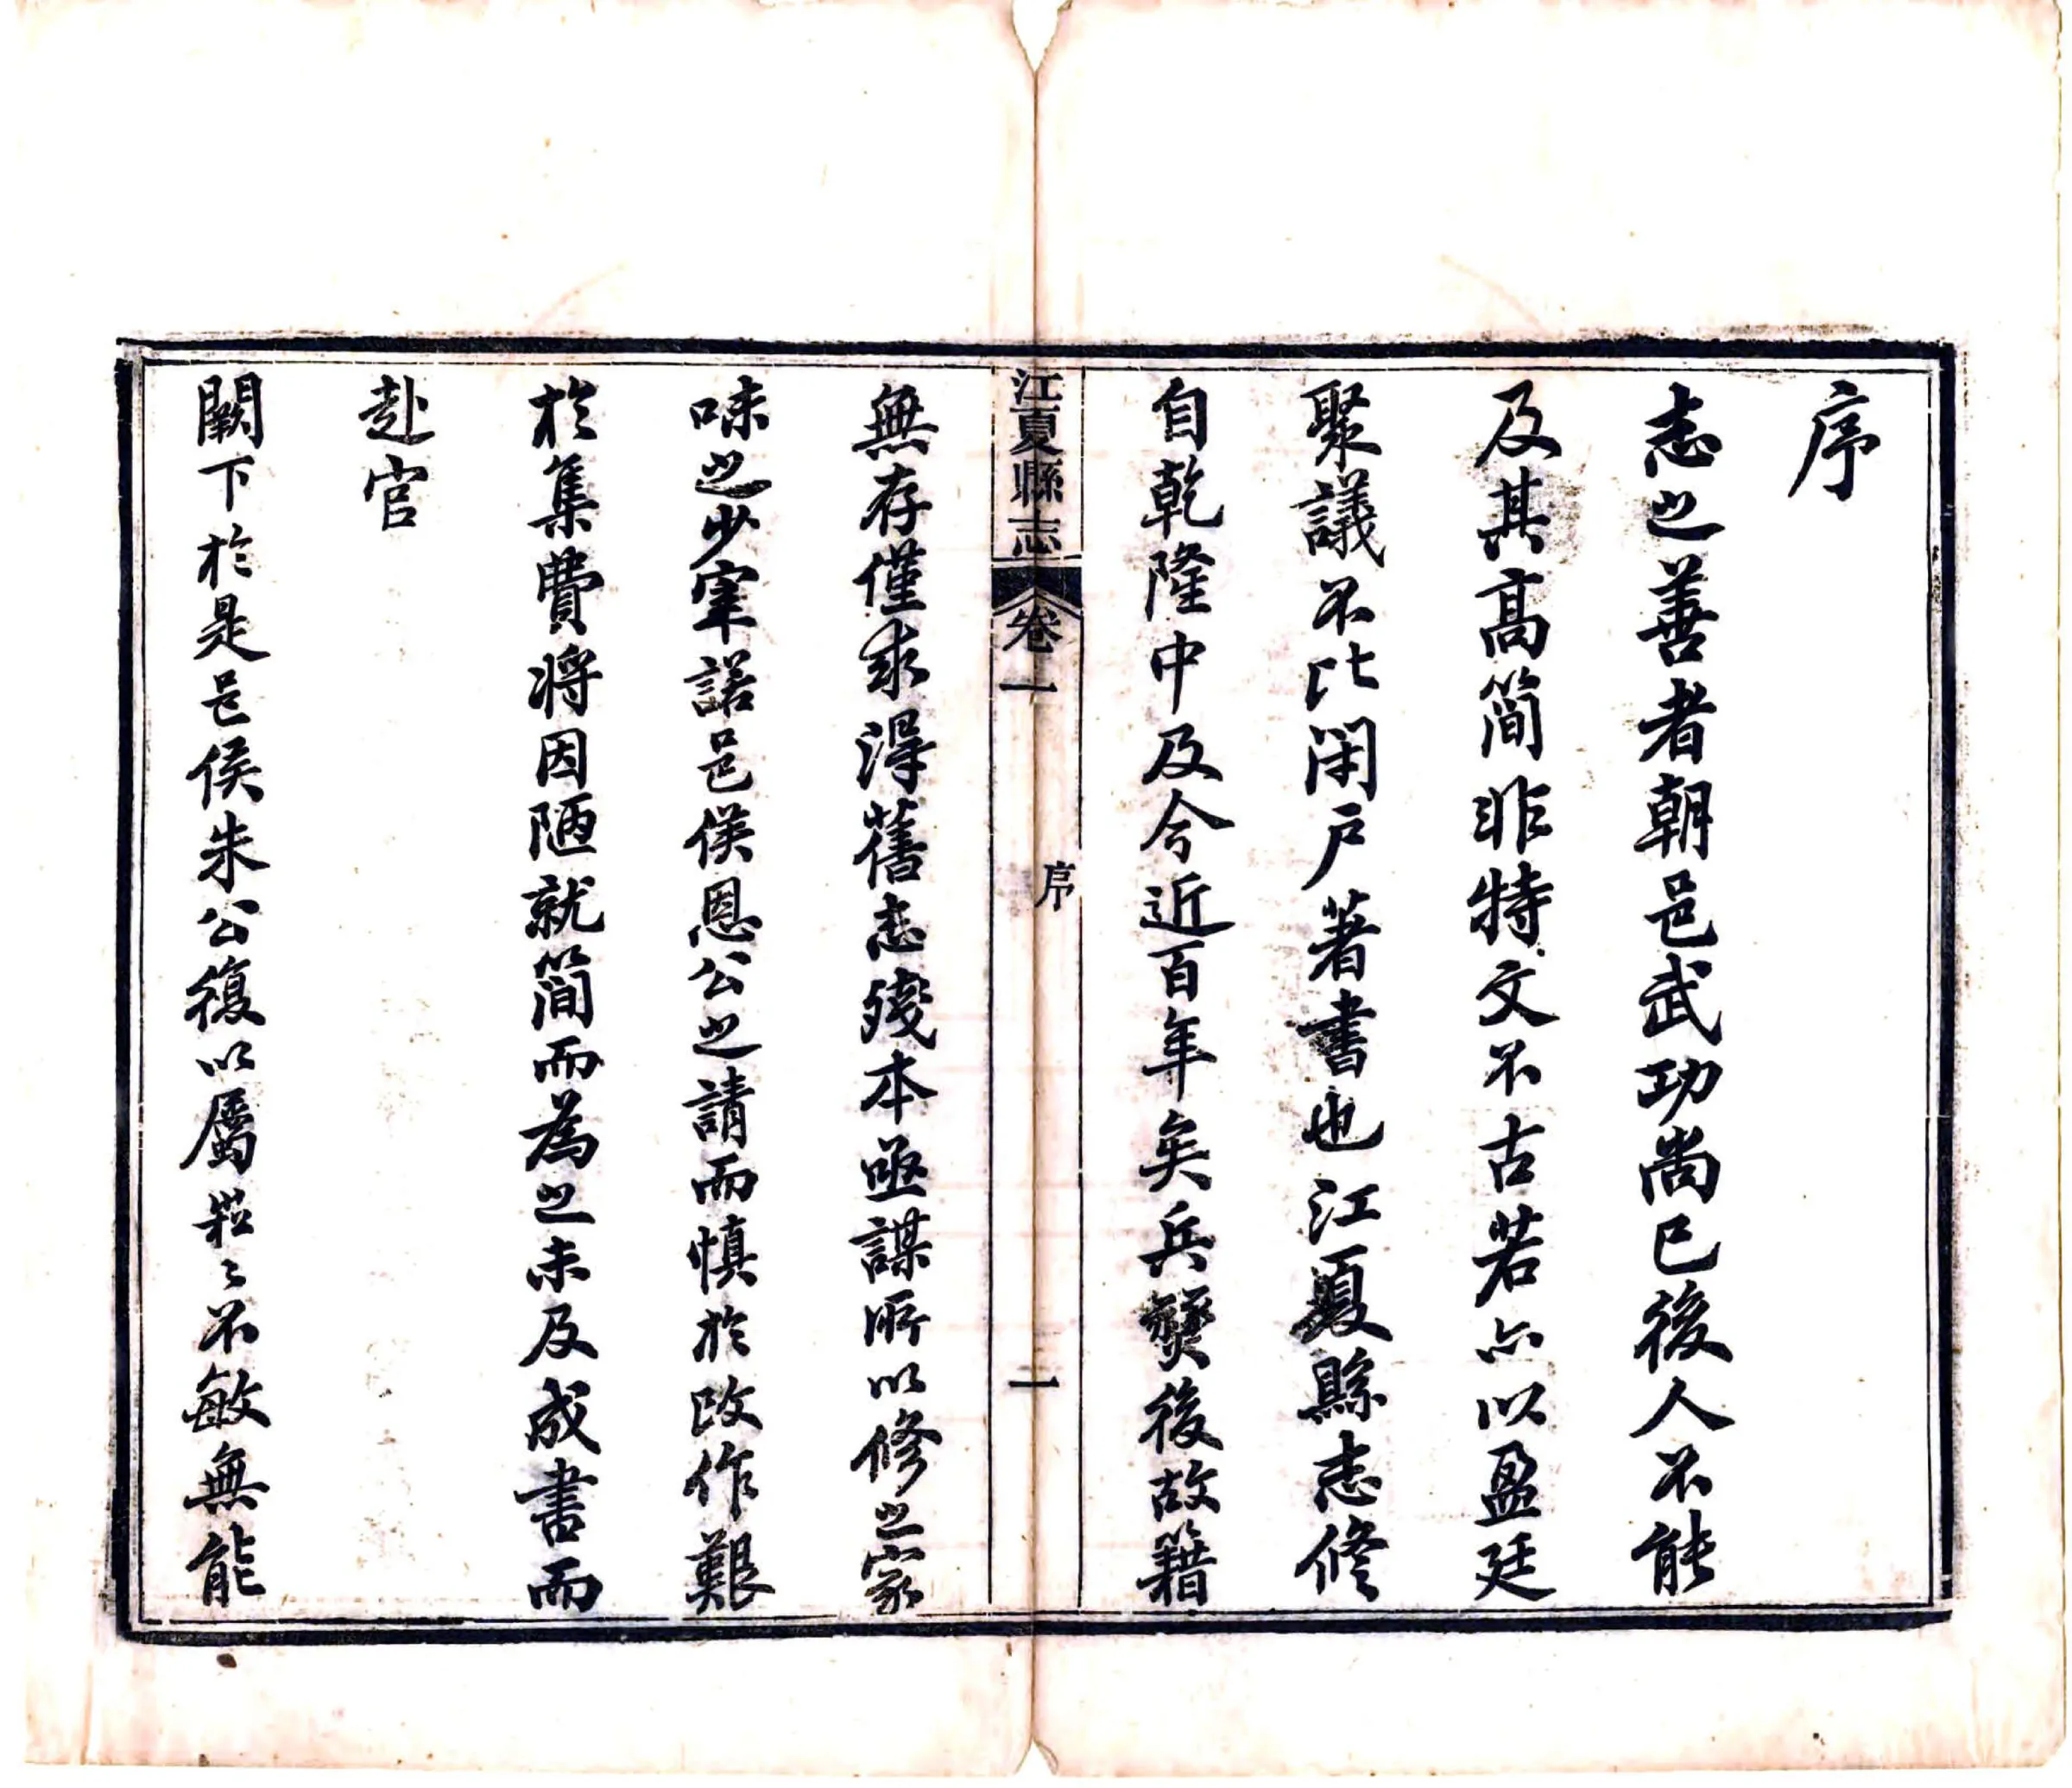 序
志之善者朝邑武功尚已後人不能
及其高簡非特文不古若亦以盈廷
聚議不比閉戶著書也江夏縣志修
自乾隆中及今近百年矣兵燹後故籍
江夏縣志 卷一 序 一
無存僅求得舊志殘本亟謀所以修之家
味之少宰諾邑侯恩公之請而慎於改作艱
於集費將因陋就簡而為之未及成書而
赴官
闕下於是邑侯朱公復以屬崧〻不敏無能